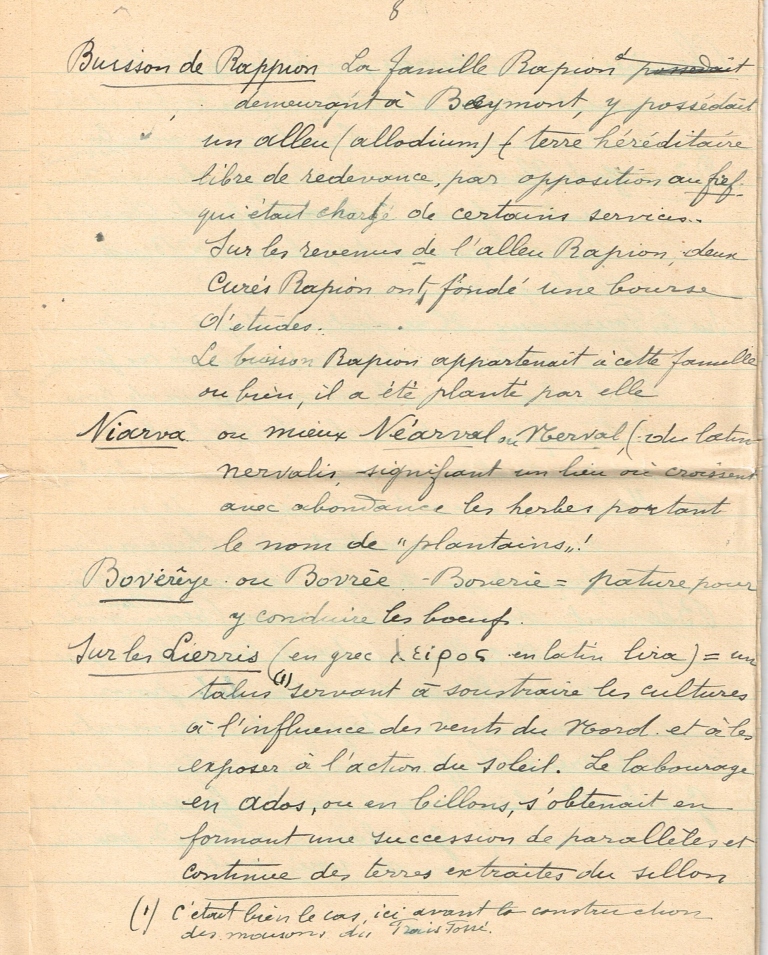 8
Buisson de Rappion La famille Rapion possédait
demeurant à Baymont, y possédait
un alleu (allodium) ( terre héréditaire
libre de redevance, par opposition au fief
qui était chargé de certains services.
Sur les revenus de l'alleu Rapion, deux
Curés Rapion ont fondé une bourse
d'études.
Le buisson Rapion appartenait à cette famille
ou bien, il a été planté par elle
Niarva ou mieux Néarval ou Nerval, (du latin
nervalis, signifiant un lieu où croissent
avec abondance les herbes portant
le nom de "plantains"!
Bovèrêye ou Bovrée - Bouerie = pature pour
y conduire les bœufs.
Sur les Lierris (en grec λειρος en latin lira) = un
talus (1) servant à soustraire les cultures
à l'influence des vents du Nord et à les
exposer à l'action du soleil. Le labourage
en ados, ou en billons, s'obtenait en
formant une succession de parallèles et
continue des terres extraites du sillon
(1) C'était bien le cas, ici avant la construction
des maisons du